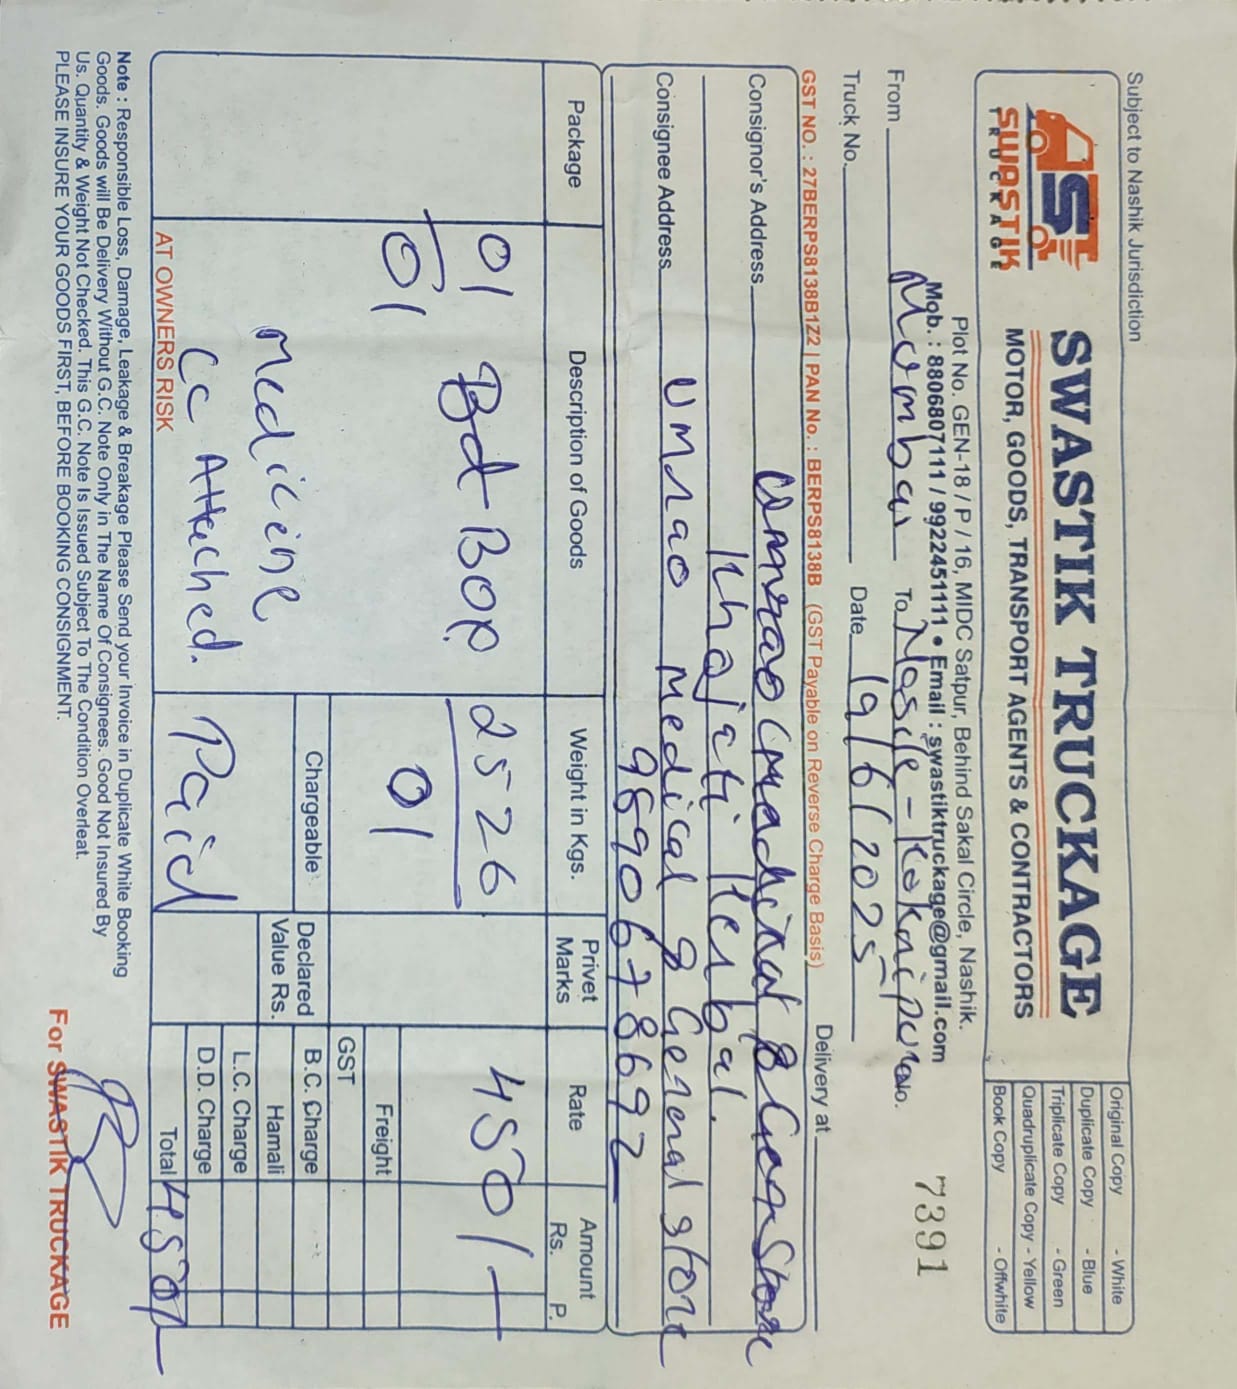 Subject to Nashik Jurisdiction
SWASTIK
TRUCKAGE
SWASTIK TRUCKAGE
MOTOR, GOODS, TRANSPORT AGENTS & CONTRACTORS
Plot No. GEN-18 / P / 16, MIDC Satpur, Behind Sakal Circle, Nashik.
Mob. : 8806807111 / 9922451111 • Email : swastiktruckage@gmail.com
Original Copy - White
Duplicate Copy - Blue
Triplicate Copy - Green
Quadruplicate Copy - Yellow
Book Copy - Offwhite
From Mumbai To Nasik - No. 7391
Truck No. Date 19/6/2025 Delivery at
GST NO. : 27BERPS8138B1Z2 | PAN No. : BERPS8138B (GST Payable on Reverse Charge Basis)
Consignor's Address & Store
Khajati Herbal.
Consignee Address Umrao Medical & General Store
9890678692
Package Description of Goods Weight in Kgs. Privet Marks Rate Amount Rs. P.
01 Bd-BOP 2526 450/-
01 01
Medicine
CC Attached.
Paid
Chargeable
Declared Value Rs.
Freight
GST
B.C. Charge
Hamali
L.C. Charge
D.D. Charge
Total 450/-
AT OWNERS RISK
Note : Responsible Loss, Damage, Leakage & Breakage Please Send your Invoice in Duplicate White Booking
Goods. Goods will Be Delivery Without G.C. Note Only in The Name Of Consignees. Good Not Insured By
Us. Quantity & Weight Not Checked. This G.C. Note Is Issued Subject To The Condition Overfeat.
PLEASE INSURE YOUR GOODS FIRST, BEFORE BOOKING CONSIGNMENT.
For SWASTIK TRUCKAGE